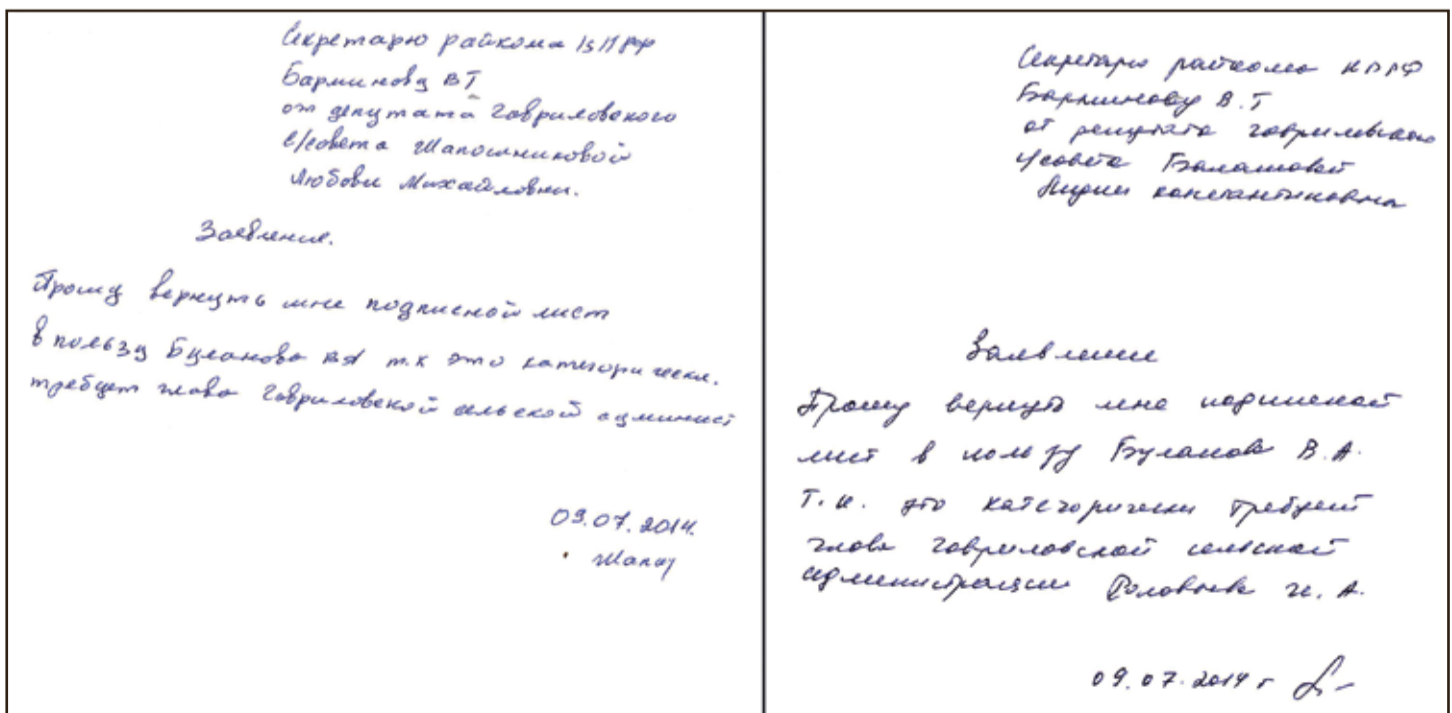 Секретарю райкома КПРФ
Барминову ВТ
от депутата Гавриловского
с/совета Шапошниковой
Любови Михайловны.
Заявление.
Прошу вернуть мне подписной лист
в пользу Буланова ВА т.к это категорически.
требует глава Гавриловской сельской админист
09.07.2014.
Шапош
Секретарю райкома КПРФ
Барминову В.Т
от депутата Гавриловского
с/совета Балашовой
Лидии Константиновны
Заявление
Прошу вернуть мне подписной
лист в пользу Буланова В.А.
Т.к. это категорически требует
глава Гавриловской сельской
администрации И. А.
09.07.2014 г